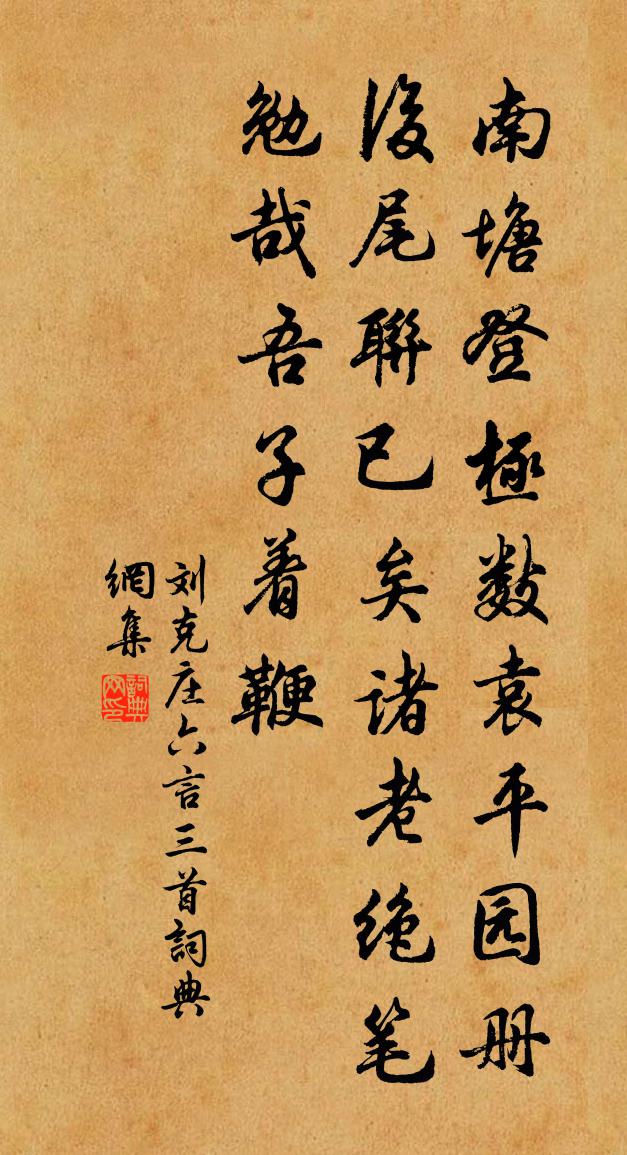 南塘登極數袁平园册
後尾聯已矣诸老绝笔
勉哉吾子着鞭
刘克庄六言三首詞典
網集
詞典
网印